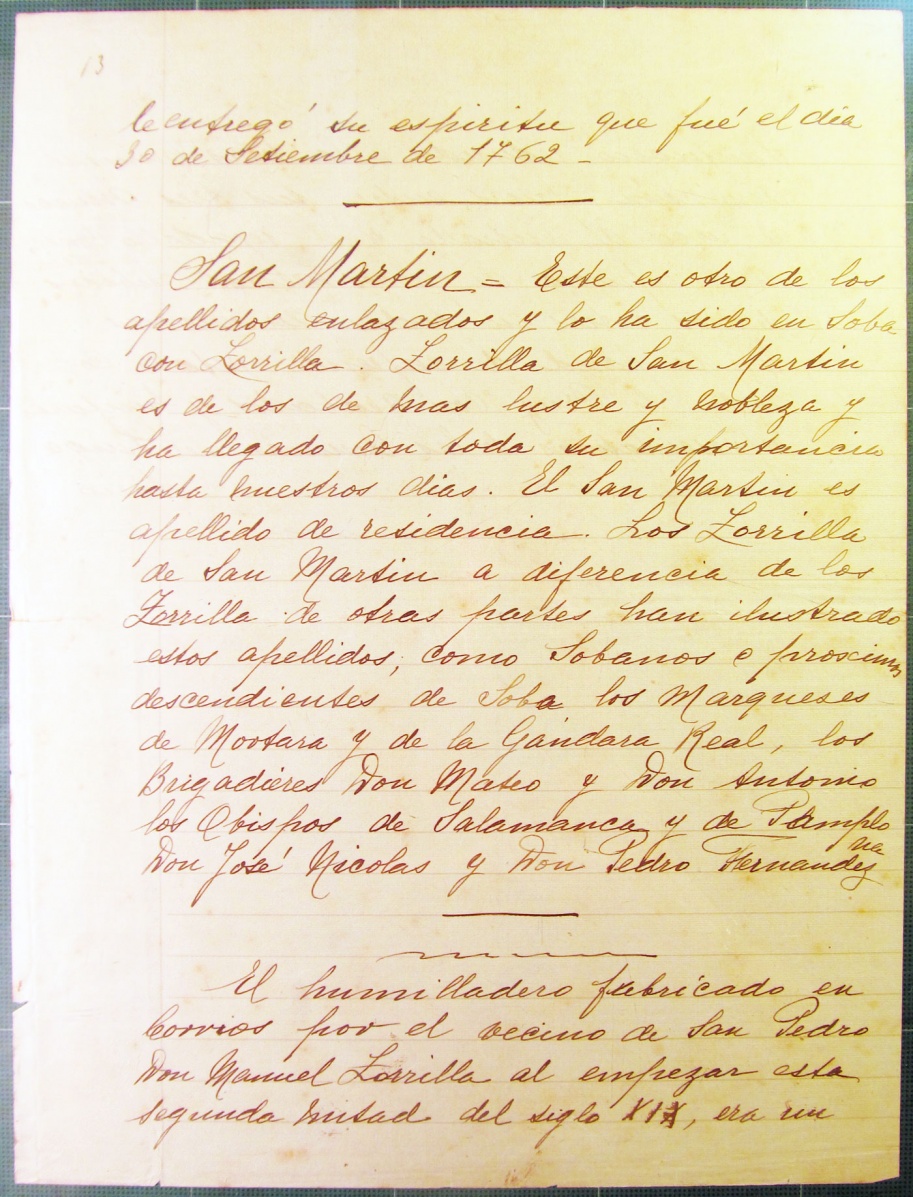 13
le entregó su espiritu que fué el dia
30 de Setiembre de 1762 -
San Martin = Este es otro de los
apellidos enlazados y lo ha sido en Soba
con Zorrilla. Zorrilla de San Martin
es de los de mas lustre y nobleza y
ha llegado con toda su importancia
hasta nuestros dias. El San Martin es
apellido de residencia. Los Zorrilla
de San Martin a diferencia de los
Zorrilla de otras partes han ilustrado
estos apellidos, como Sobanos o proximos
descendientes de Soba los Marqueses
de Mootara y de la Gándara Real, los
Brigadieres Don Mateo y Don Antonio
los Obispos de Salamanca y de Pamplo
na
Don José Nicolas y Don Pedro Fernandez
El humilladero fabricado en
por el vecino de San Pedro
Don Manuel Zorrilla al empezar esta
segunda mitad del siglo XIX, era un